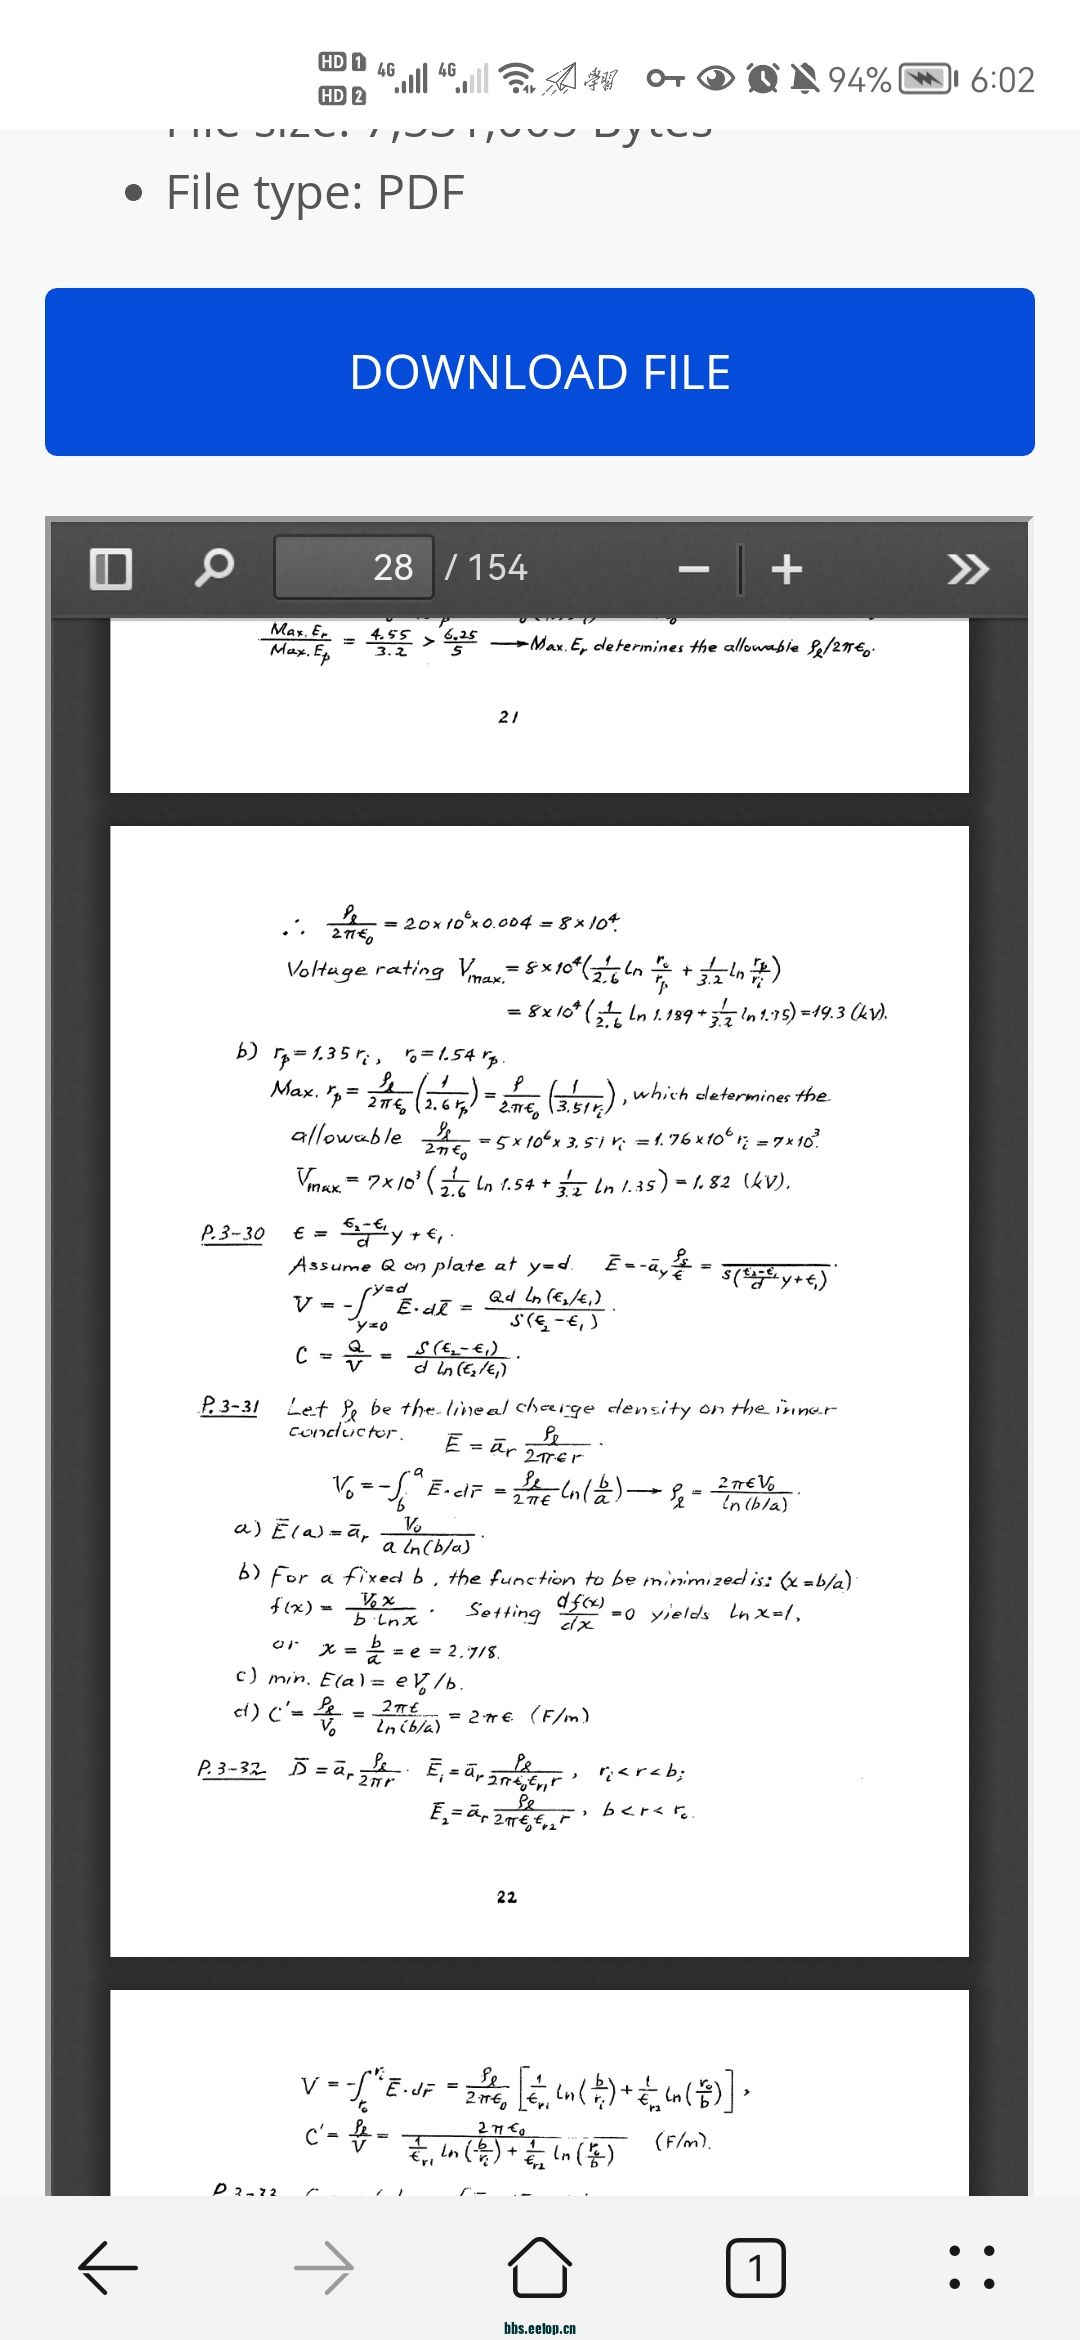 HD 1 HD 2 4G 4G 学習 94% 6:02
File size: 7,551,005 Bytes
• File type: PDF
DOWNLOAD FILE
28 / 154
Max. E_r / Max. E_p = 4.55/3.2 > 6.25/5 → Max. E_r determines the allowable ρ_ℓ/2πϵ₀.
21
∴ ρ_ℓ/2πϵ₀ = 20×10⁶×0.004 = 8×10⁴.
Voltage rating V_max. = 8×10⁴(1/2.6 ln r_o/r_p + 1/3.2 ln r_p/r_i)
= 8×10⁴(1/2.6 ln 1.189 + 1/3.2 ln 1.75) = 19.3 (kV).
b) r_p = 1.35 r_i, r_o = 1.54 r_p.
Max. r_p = ρ_ℓ/2πϵ₀ (1/2.6 r_p) = ρ/2πϵ₀ (1/3.51 r_i), which determines the
allowable ρ_ℓ/2πϵ₀ = 5×10⁶×3.51 r_i = 1.76×10⁶ r_i = 7×10³.
V_max. = 7×10³(1/2.6 ln 1.54 + 1/3.2 ln 1.35) = 1.82 (kV).
P.3-30 ϵ = (ϵ₂-ϵ₁)/d y + ϵ₁.
Assume Q on plate at y=d. Ē = -ā_y ρ_s/ϵ = / S((ϵ₂-ϵ₁)/d y+ϵ₁).
V = -∫_{y=0}^{y=d} Ē·dℓ̄ = Qd ln(ϵ₂/ϵ₁) / S(ϵ₂-ϵ₁).
C = Q/V = S(ϵ₂-ϵ₁) / d ln(ϵ₂/ϵ₁).
P.3-31 Let ρ_ℓ be the lineal charge density on the inner
conductor. Ē = ā_r ρ_ℓ/2πϵr.
V₀ = -∫_b^a Ē·dr̄ = ρ_ℓ/2πϵ ln(b/a) → ρ_ℓ = 2πϵV₀/ln(b/a).
a) Ē(a) = ā_r V₀ / a ln(b/a).
b) For a fixed b, the function to be minimized is: (x=b/a)
f(x) = V₀x / b ln x. Setting df(x)/dx = 0 yields ln x=1,
or x = b/a = e = 2.718.
c) min. E(a) = eV₀/b.
d) C' = ρ_ℓ/V₀ = 2πϵ/ln(b/a) = 2πϵ (F/m)
P.3-32 D̄ = ā_r ρ_ℓ/2πr. Ē₁ = ā_r ρ_ℓ/2πϵ₀ϵ_r1 r, r_i<r<b;
Ē₂ = ā_r ρ_ℓ/2πϵ₀ϵ_r2 r, b<r<r_o.
22
V = -∫_{r_o}^{r_i} Ē·dr̄ = ρ_ℓ/2πϵ₀ [1/ϵ_r1 ln(b/r_i) + 1/ϵ_r2 ln(r_o/b)],
C' = ρ_ℓ/V = 2πϵ₀ / (1/ϵ_r1 ln(b/r_i) + 1/ϵ_r2 ln(r_o/b)) (F/m).
P.3-33
1
bbs.eetop.cn